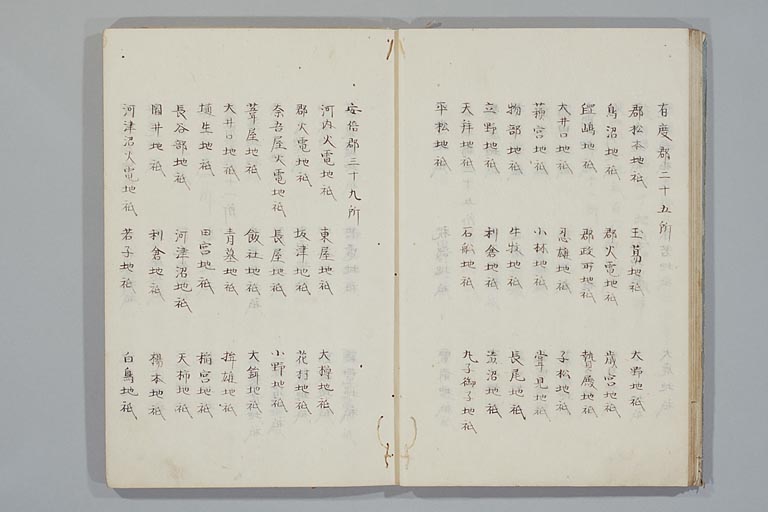 有度郡二十五所
郡松本地祇 玉葛地祇 大野地祇
鳥沼地祇 郡火電地祇 歳宮地祇
皿嶋地祇 郡政所地祇 贄度地祇
大井口地祇 忍雄地祇 子松地祇
菰宮地祇 小林地祇 常見地祇
物部地祇 牛牧地祇 長尾地祇
立野地祇 利倉地祇 清沼地祇
天拝地祇 石船地祇 九子御子地祇
平松地祇
安倍郡三十九所
河内火電地祇 東屋地祇 大樽地祇
郡火電地祇 坂津地祇 花村地祇
奈吾屋火電地祇 長屋地祇 小野地祇
葦屋地祇 飯社地祇 大鎰地祇
大井口地祇 青墓地祇 拝雄地祇
埴生地祇 田宮地祇 稲宮地祇
長谷部地祇 河津沼地祇 天柿地祇
国井地祇 利倉地祇 楊本地祇
河津沼火電地祇 若子地祇 白鳥地祇